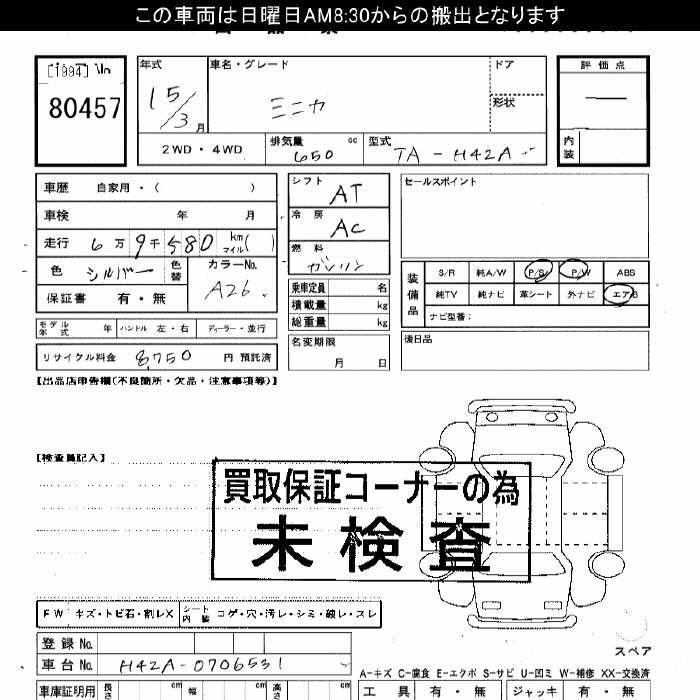 この車両は日曜日AM8:30からの搬出となります
[1994] Vln
80457
年式
15/3月
車名・グレード
ミニカ
ドア
形状
評価点
内装
2WD・4WD
排気量 650 cc
型式 TA-H42A
車歴 自家用・( )
車検 年 月
走行 6万9千580 km マイル( )
色 シルバー 色替
カラーNo. A26
保証書 有・無
モデル年式 年 ハンドル 左・右 ディーラー・並行
リサイクル料金 8,750 円 預託済
シフト AT
冷房 AC
燃料 ガソリン
乗車定員 名
積載量 kg
総重量 kg
名変期限 月 日
セールスポイント
装備品
S/R 純A/W P/S P/W ABS
純TV 純ナビ 革シート 外ナビ エアB
ナビ型番:
後日品
【出品店申告欄(不良箇所・欠品・注意事項等)】
【検査員記入】
買取保証コーナーの為
未検査
FW キズ・トビ石・割レX シート内装 コゲ・穴・汚レ・シミ・破レ・スレ
登録No.
車台No. H42A-0706531
スペア
A-キズ C-腐食 E-エクボ S-サビ U-凹ミ W-補修 XX-交換済
車庫証明用 長さ cm 幅 cm 高さ cm
工具 有・無 ジャッキ 有・無